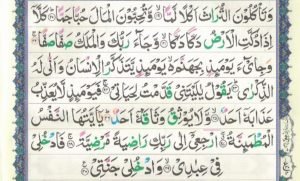 وَتَأْكُلُوْنَ التُّرَاثَ اَكْلًا لَّمًّا ۙ وَّتُحِبُّوْنَ الْمَالَ حُبًّا جَمًّا ؕ كَلَّاۤ
اِذَا دُكَّتِ الْاَرْضُ دَكًّا دَكًّا ۙ وَّجَآءَ رَبُّكَ وَالْمَلَكُ صَفًّا صَفًّا ۚ
وَجِایْٓءَ يَوْمَئِذٍۭ بِجَهَنَّمَ ۙ يَوْمَئِذٍ يَّتَذَكَّرُ الْاِنْسَانُ وَاَنّٰى لَهُ
الذِّكْرٰى ؕ يَقُوْلُ يٰلَيْتَنِيْ قَدَّمْتُ لِحَيَاتِيْ ۚ فَيَوْمَئِذٍ لَّا يُعَذِّبُ
عَذَابَهٗۤ اَحَدٌ ۙ وَّلَا يُوْثِقُ وَثَاقَهٗۤ اَحَدٌ ؕ يٰۤاَيَّتُهَا النَّفْسُ
الْمُطْمَئِنَّةُ ۖ ارْجِعِيْۤ اِلٰى رَبِّكِ رَاضِيَةً مَّرْضِيَّةً ۚ فَادْخُلِيْ
فِيْ عِبٰدِيْ ۙ وَادْخُلِيْ جَنَّتِيْ